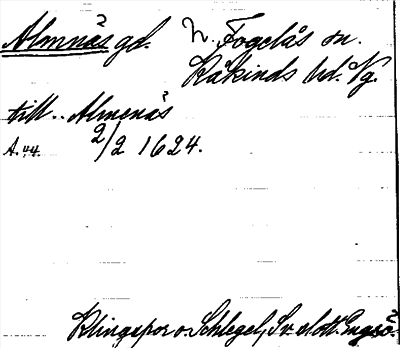 Almnäs gd. N. Fogelås sn.
Kåkinds hd. Vg.
till.. Almenäs
A. 44. 2/2 1624.
Klingspor o. Schlegel, Sv. slott. Engsö.